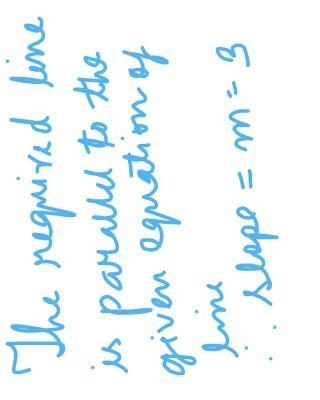 The required line
is parallel to the
given equation of
line
∴ slope = m = 3